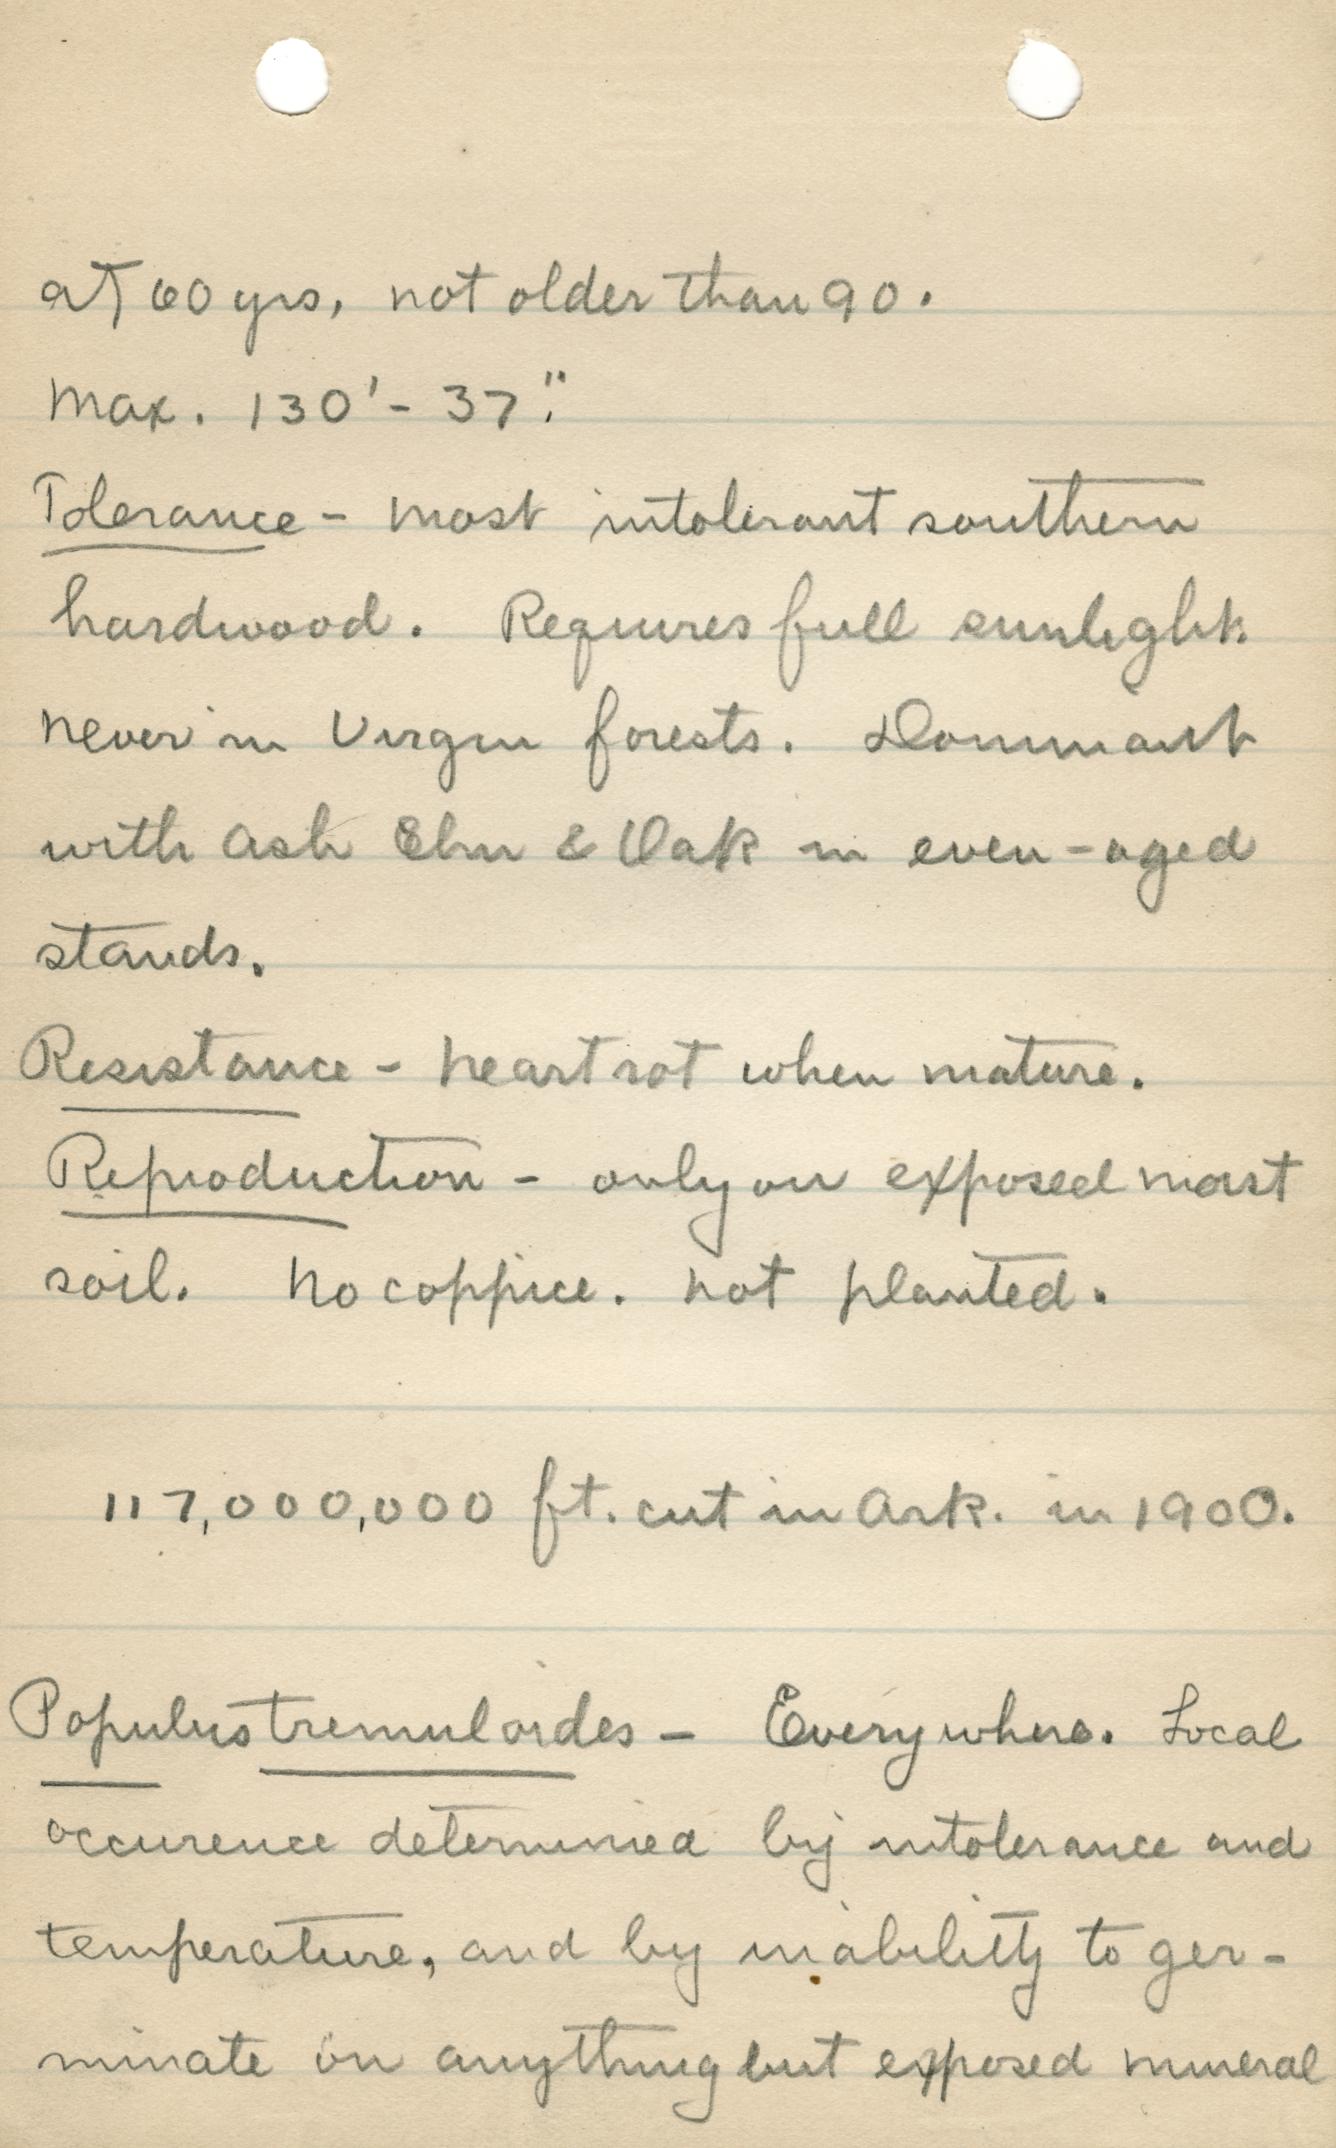 at 60 yrs, not older than 90.
Max. 130' - 37".
Tolerance - most intolerant southern
hardwood. Requires full sunlight.
Never in Virgin forests. Dominant
with Ash Elm & Oak in even-aged
stands.
Resistance - heart rot when mature.
Reproduction - only on exposed moist
soil. No coppice. Not planted.
117,000,000 ft. cut in Ark. in 1900.
Populus tremuloides - Everywhere. Local
occurence determined by intolerance and
temperature, and by inability to ger-
minate on anything but exposed mineral